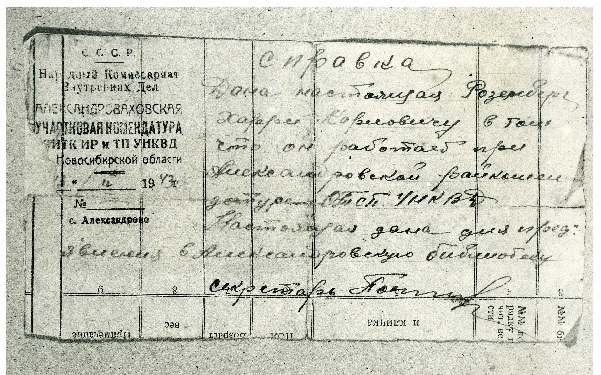 С. С. С. Р.
Народный Комиссариат
Внутренних Дел
АЛЕКСАНДРОВАХОВСКАЯ
УЧАСТКОВАЯ КОМЕНДАТУРА
ИТК ИР и ТП УНКВД
Новосибирской области
1943
№
с. Александрово
Справка
Дана настоящая Розенберг
Харри Карловичу в том
что он работает при
Александровской райкомен
датуре ОТСП УНКВД
Настоящая дана для пред-
явления в Александровскую библиотеку
секретарь
9
8
и кличка
пол
Возраст
вес
Примечание